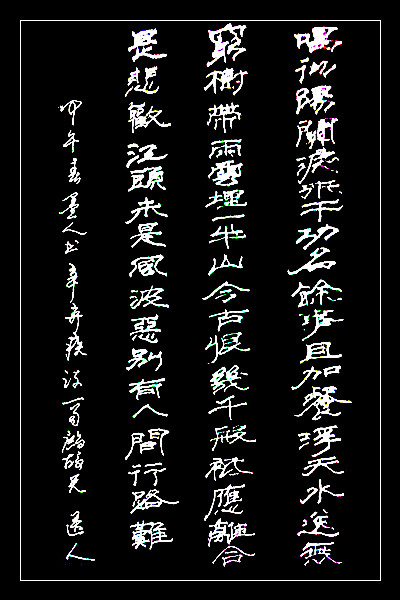 唱徹陽關淚未干功名餘事且加餐浮天水送無
窮樹帶雨雲埋一半山今古恨幾千般祗應離合
是悲歡江頭未是風波惡別有人間行路難
甲午春墨人书辛弃疾词一首鹧鸪天 送人